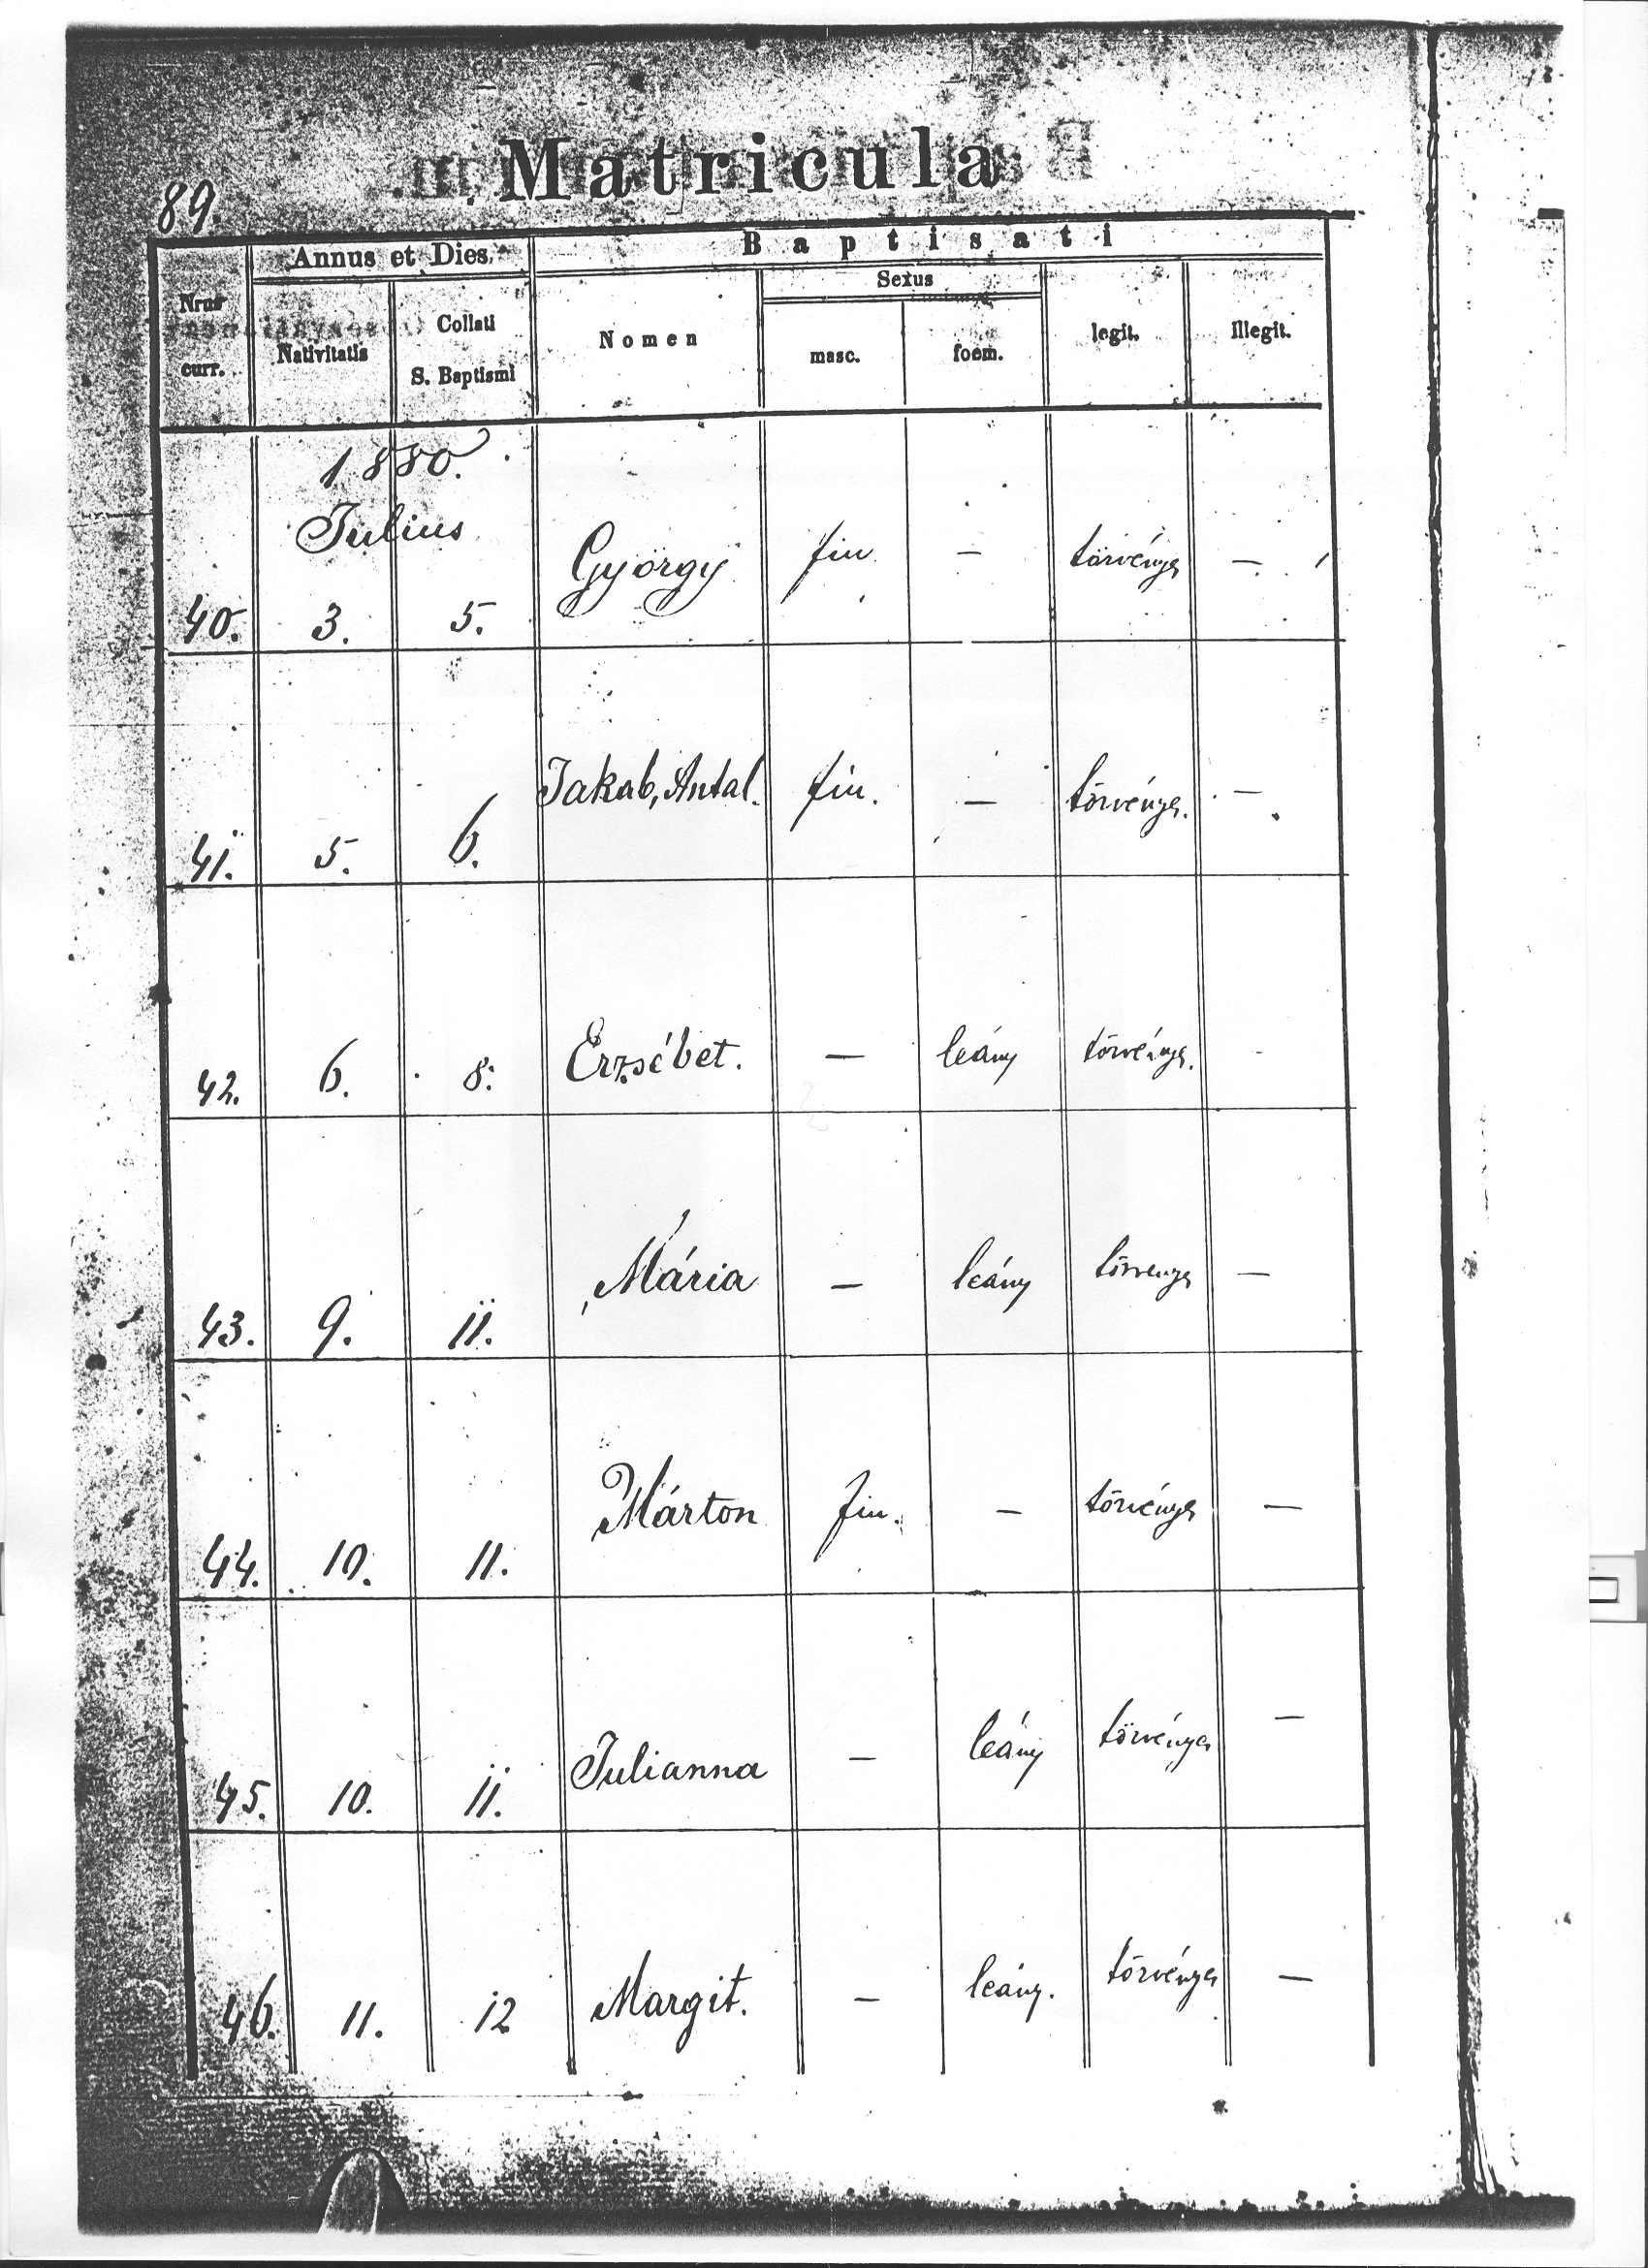 Matricula
89.
Annus et Dies. Baptisati
Nrus curr. Nativitatis Collati S. Baptismi Nomen Sexus masc. foem. legit. Illegit.
1880.
Julius
40. 3. 5. György fiu. — törvényes —
41. 5. 6. Jakab, Antal. fiu. — törvényes. —
42. 6. 8. Erzsébet. — leány törvényes. -
43. 9. 11. Mária — leány törvenyes —
44. 10. 11. Márton fiu. — törvényes —
45. 10. 11. Julianna — leány törvényes —
46. 11. 12 Margit. — leány. törvényes —